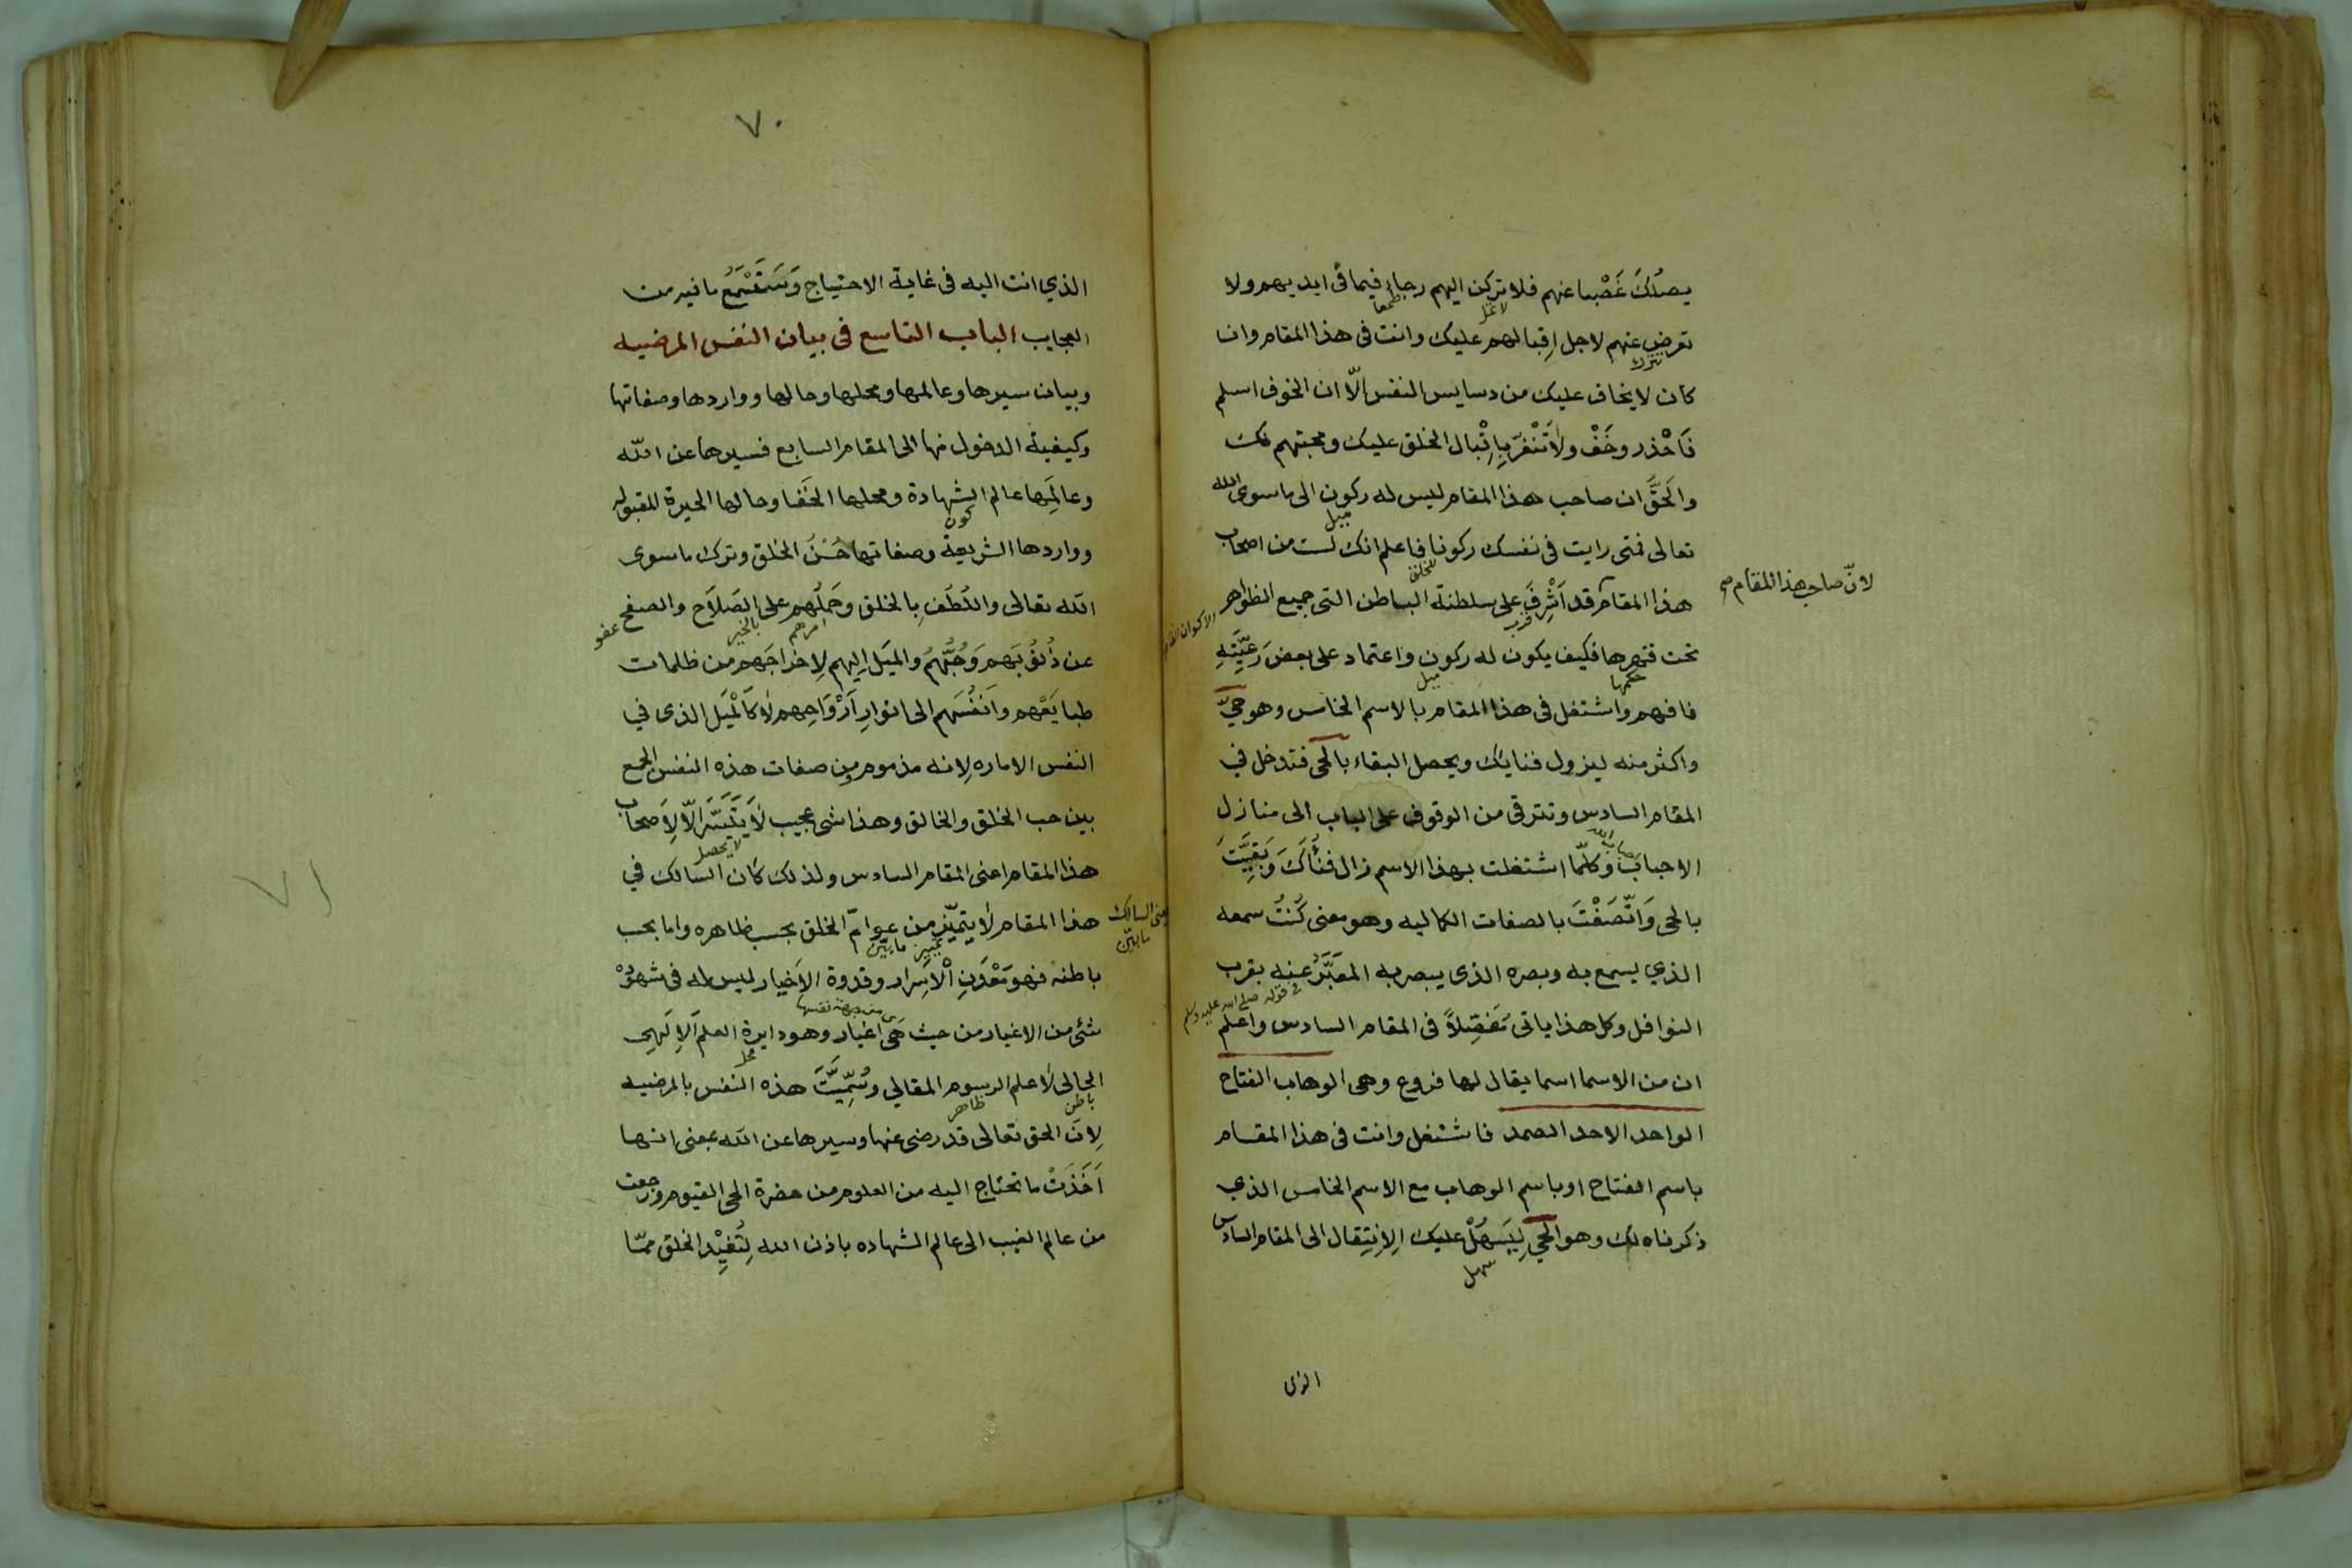 يصلك غَصْبا عنهم فلا تركن اليهم رجاء فيما فى ايديهم ولا
تعرض عنهم لاجل اِقبالهم عليك وانت فى هذا المقام وان
كان لا يخاف عليك من دسايس النفس الّا ان الخوف اسلم
فَاحْذر وخَفْ ولا تَنْغرّ بِاِقْبال الخلق عليك ومحبتهم لك
والحَقَّ ان صاحب هذا المقام ليس له ركون الى ما سوى الله
تعالى فمتى رايت فى نفسك ركونا فاعلم انك لست من اصحاب
هذا المقام قد اَشْرفَ على سلطنة الباطن التى جميع الظواهر
لانّ صاحب هذا المقام صح
تحت قهرها فكيف يكون له ركون واعتماد على بعض رَعِيَّتِهِ
فافهم واشتغل فى هذا المقام بالاسم الخامس وهو حيّ
واكثر منه ليزول فنايك ويحصل البقاء بالحى فتدخل في
المقام السادس وتترقى من الوقوف على الباب الى منازل
الاحباب وكلّما اشتغلت بهذا الاسم زال فنَأكَ وَبَقِيَّتَ
بالحى وَاتّصَفْتَ بالصفات الكماليه وهو معنى كُنتُ سمعه
الذي يسمع به وبصره الذى يبصر به المعَبَّرُ عنه بقرب
فى قوله صلى الله عليه وسلم
النوافل وكل هذا ياتى تَفصِيلاً فى المقام السادس واعلم
ان من الاسما اسما يقال لها فروع وهى الوهاب الفتاح
الواحد الاحد الصمد فاشتغل وانت فى هذا المقام
باسم الفتاح او باسم الوهاب مع الاسم الخامس الذي
ذكرناه لك وهو الحي لِيَسهُلْ عليك الاِنتِقال الى المقام السادس
سهل
الذى
٧٠
الذي انت اليه فى غاية الاحتياج وَستَسْمَعُ ما فيه من
العجايب الباب التاسع فى بيان النفس المرضيه
وبيان سيرها وعالمها ومحلها وحالها وواردها وصفاتها
وكيفية الدخول منها الى المقام السابع فسيرها عن الله
وعالمَِها عالم الشهادة ومحلها الخَفا وحالها الحيرة المقبوله
كون
وواردها الشريعة وصفاتها حُسْنَ الخلق وترك ما سوى
الله تعالى واللُطف بالخلق وحَملُهم على الصَلاَح والصفح
امرهم بالخير عفو
عن ذُنوُبَهم وَحُبَّهُمُ والميَل اِليهم لِاخراجَهم من ظلمات
طبايَعْهم واَنفُسَهم الى انوارِ اَرْوَاحِهم لا كاَلمْيَل الذى في
النفس الاماره لانه مذموم ومن صفات هذه النفس الجمع
بين حب الخلق والخالق وهذا شى عجيب لا يَتَيَسَّرَ الّا لاَصحاب
لا يحصل
هذا المقام اعنى المقام السادس ولذلك كان السالك في
هذا المقام لا يتميّز من عوامّ الخلق بحسب ظاهره واما بحسب
باطنه فهو مَعْدَنِ اْلاسَرار وقدوة الاَخيار ليس له فى شهوْ
من جهة نفسها
شئى من الاغيار من حيث هَى اغيار وهو دايرة العلم الاِلَهي
محل
الحالى لا علم الرسوم المقالي وسُمِّيَّتَ هذه النفس بالمرضيه
باطن ظاهر
لاِنَ الحق تعالى قد رضى عنها وسيرها عن الله بمعنى انها
اَخَذَتْ ما تحتاج اليه من العلوم من حضرة الحى القيوم ورجعت
من عالم الغيب الى عالم الشهاده باذن الله لِتُفِيْد الخلق ممّا
٧١